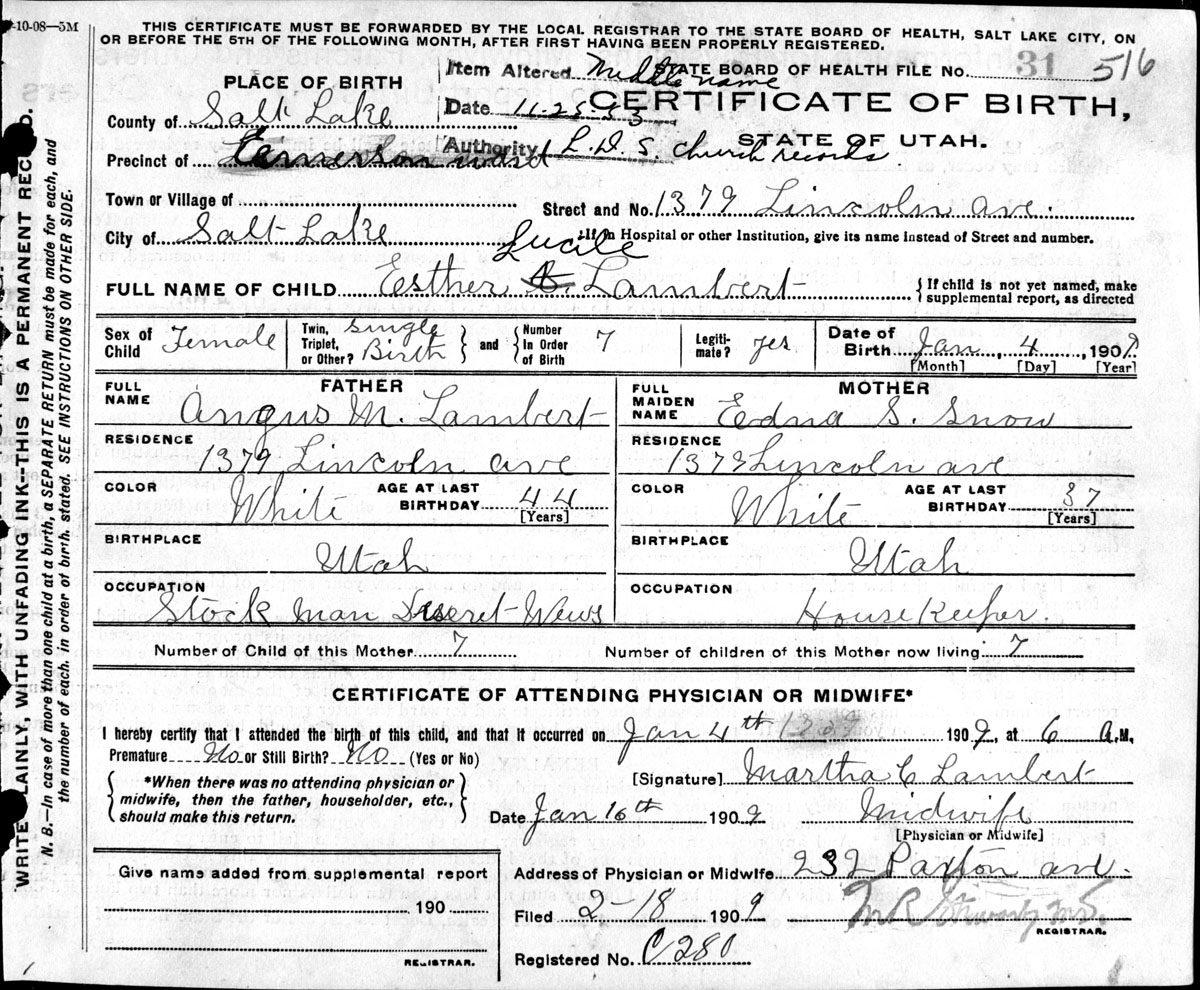 -10-08—5M
THIS CERTIFICATE MUST BE FORWARDED BY THE LOCAL REGISTRAR TO THE STATE BOARD OF HEALTH, SALT LAKE CITY, ON
OR BEFORE THE 5TH OF THE FOLLOWING MONTH, AFTER FIRST HAVING BEEN PROPERLY REGISTERED.
PLACE OF BIRTH
Item Altered Middle name
STATE BOARD OF HEALTH FILE No. 31 516
County of Salt Lake
Date 11-25-53
CERTIFICATE OF BIRTH,
STATE OF UTAH.
Precinct of ward
Authority L.D.S. Church records
Town or Village of
Street and No. 1379 Lincoln ave.
City of Salt Lake
If in Hospital or other Institution, give its name instead of Street and number.
Lucile
FULL NAME OF CHILD Esther Lambert
If child is not yet named, make
supplemental report, as directed
Sex of Child Female
Twin, Triplet, or Other? Single Birth and Number In Order of Birth 7
Legiti-mate? yes
Date of Birth Jan, 4, 1909
[Month] [Day] [Year]
FATHER
FULL NAME Angus M. Lambert
RESIDENCE 1379 Lincoln ave
COLOR White AGE AT LAST BIRTHDAY 44
[Years]
BIRTHPLACE Utah
OCCUPATION Stock man Deseret News
MOTHER
FULL MAIDEN NAME Edna S. Snow
RESIDENCE 1379 Lincoln ave
COLOR White AGE AT LAST BIRTHDAY 37
[Years]
BIRTHPLACE Utah
OCCUPATION House Keeper.
Number of Child of this Mother 7 Number of children of this Mother now living 7
CERTIFICATE OF ATTENDING PHYSICIAN OR MIDWIFE*
I hereby certify that I attended the birth of this child, and that it occurred on Jan 4th 1909, at 6 A.M.
Premature No or Still Birth? No (Yes or No)
*When there was no attending physician or
midwife, then the father, householder, etc.,
should make this return.
[Signature] Martha C Lambert
Date Jan 16th 1909 Midwife
[Physician or Midwife]
Address of Physician or Midwife 232 Paxton ave.
Filed 2-18 1909
REGISTRAR.
Registered No. C280
Give name added from supplemental report
190
REGISTRAR.
WRITE PLAINLY, WITH UNFADING INK—THIS IS A PERMANENT RECORD.
N. B.—In case of more than one child at a birth, a SEPARATE RETURN must be made for each, and
the number of each, in order of birth, stated. SEE INSTRUCTIONS ON OTHER SIDE.